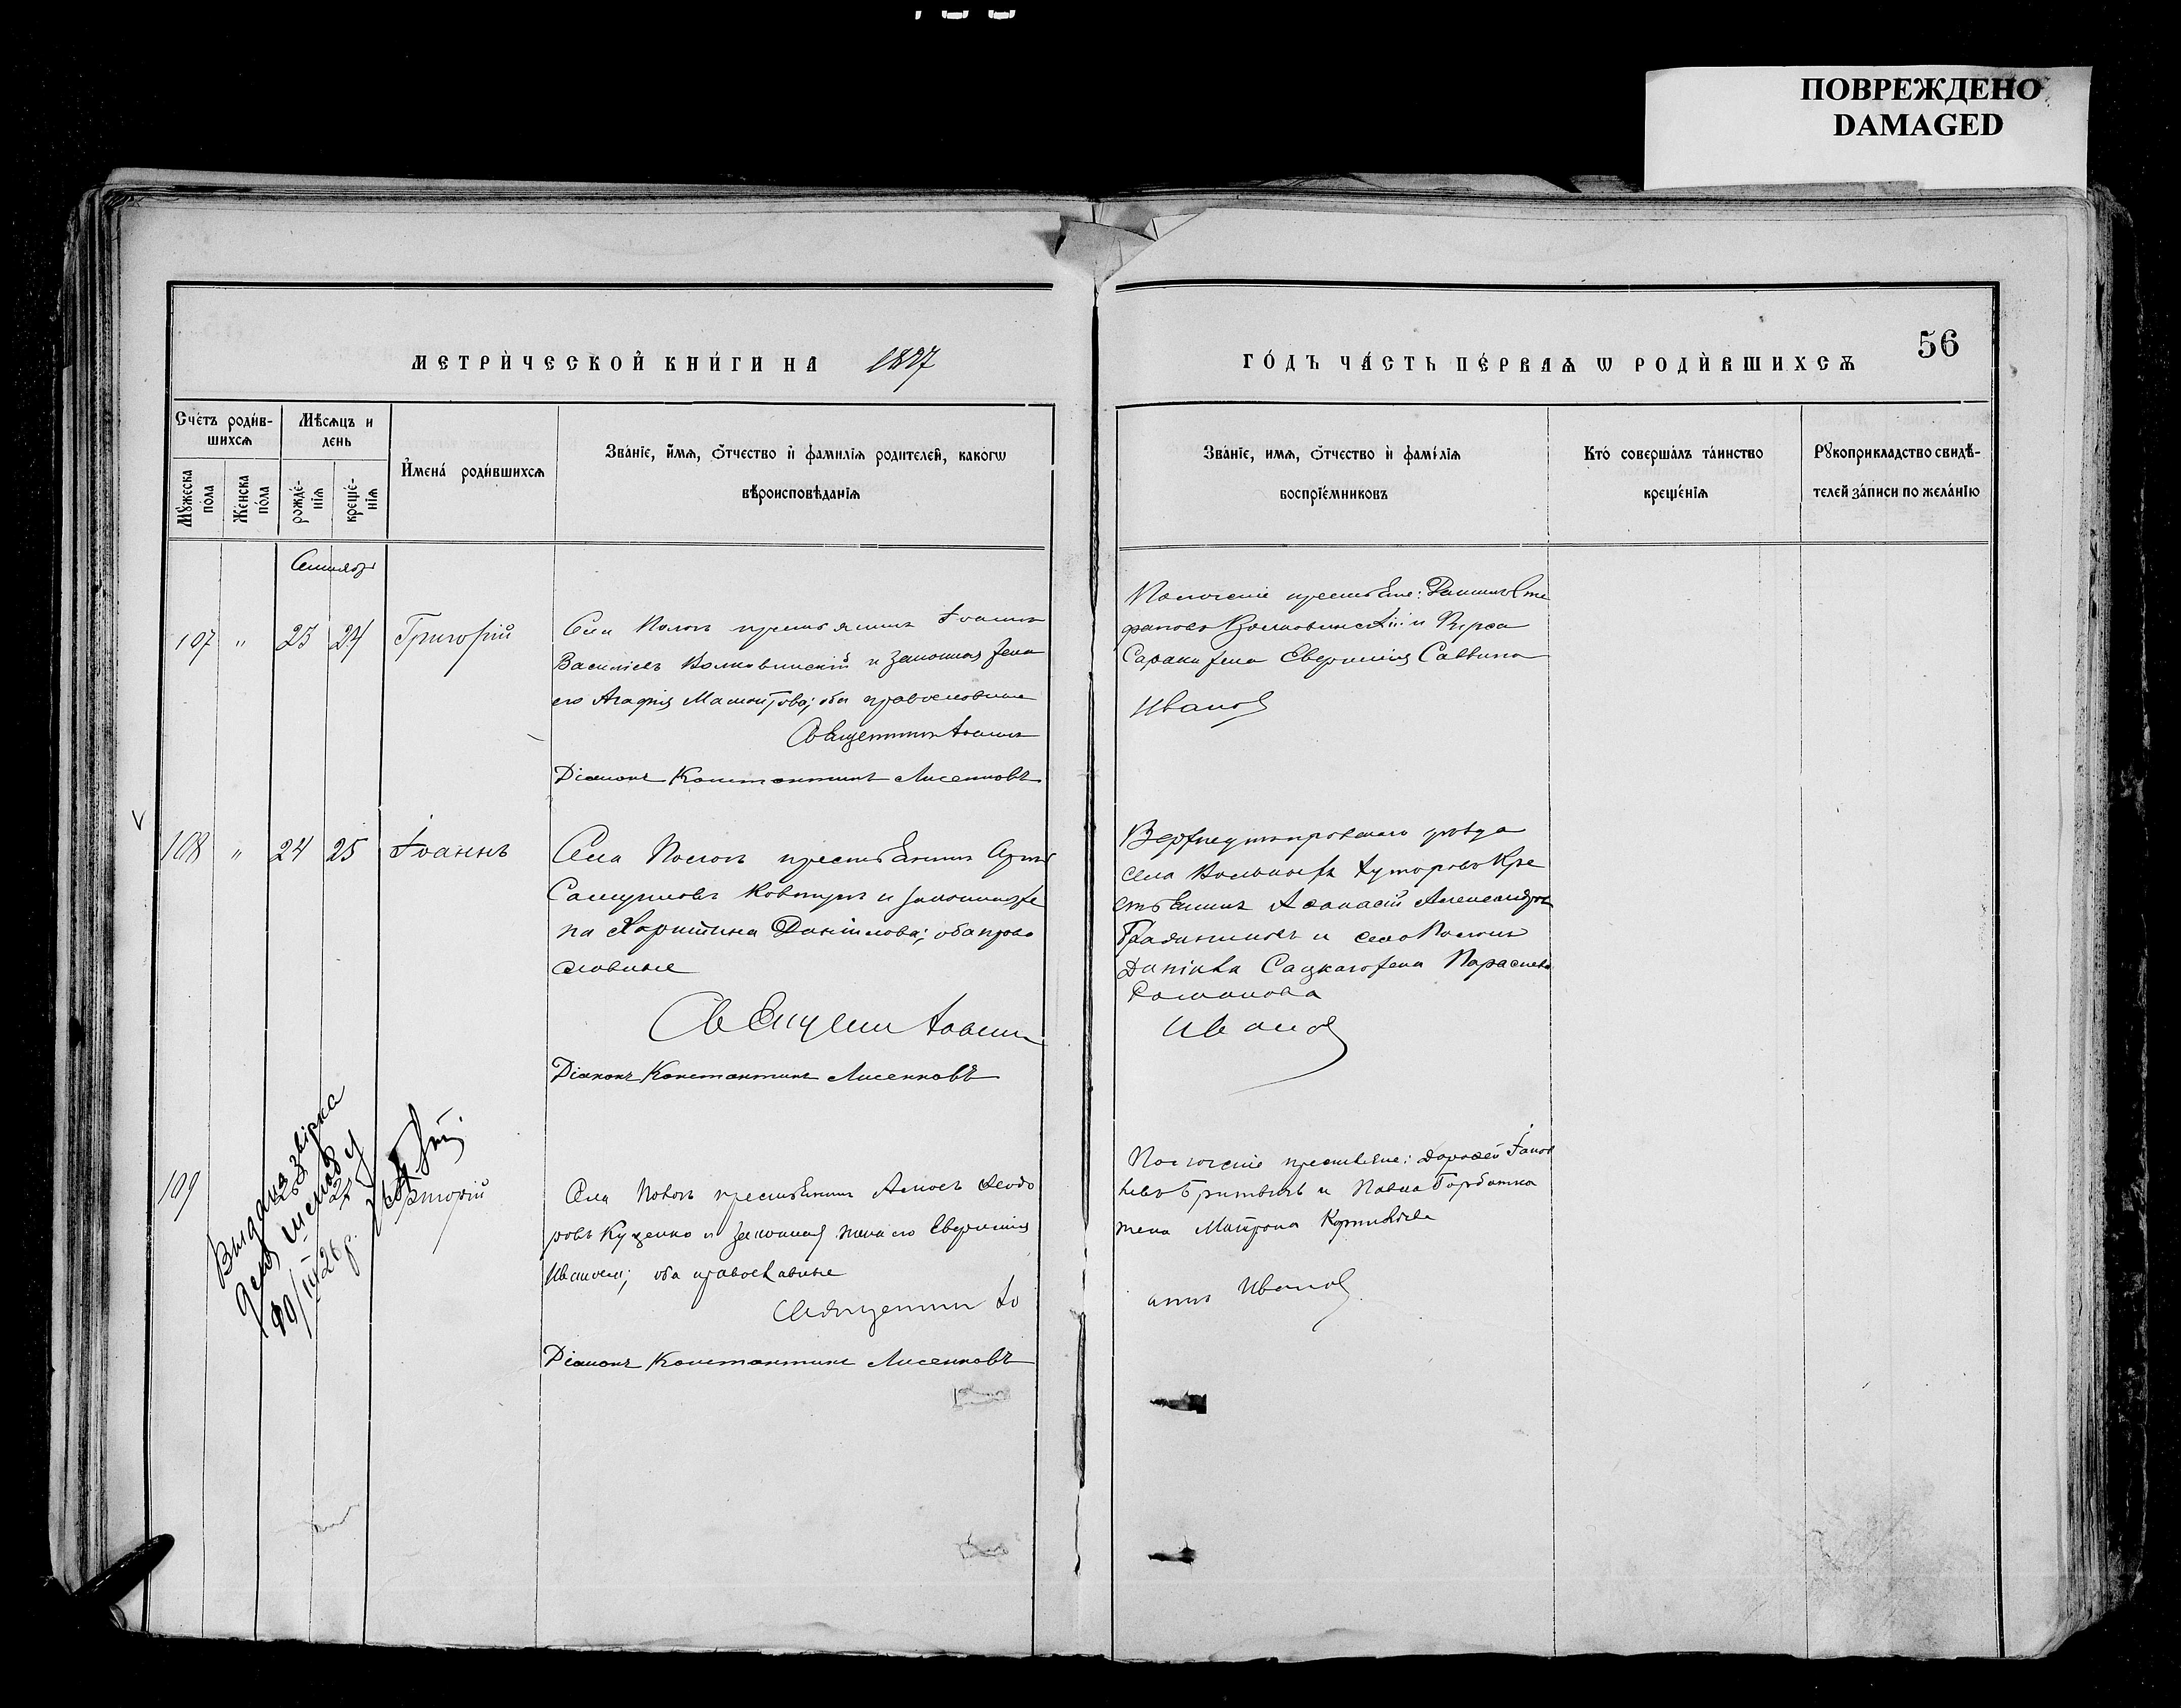 ПОВРЕЖДЕНО
DAMAGED
МЕТРИ́ЧЕСКОЙ КНИ́ГИ НА 1897
ГО́ДЪ ЧА́СТЬ ПЕ́РВАѦ Ѡ РОДИ́ВШИХСѦ
56
Сче́тъ роди́в-
шихсѧ
Мѣсѧцъ и
день
Мꙋ́жеска
по́ла
Же́нска
по́ла
рожде́-
нїѧ
креще́-
нїѧ
Имена́ роди́вшихсѧ
Зва́нїе, и́мѧ, ѻ́тчество и҆ фами́лїѧ роди́телей, како́гѡ
вѣроисповѣ́данїѧ
Зва́нїе, имѧ, ѻ́тчество и҆ фамі́лїѧ
воспрїе́мниковъ
Кто́ соверша́лъ та́инство
креще́нїѧ
Рꙋкоприкладство свидѣ́-
телей за́писи по жела́нїю
107 " 23 24 Григорій
Села Пологъ крестьянинъ Іоаннъ
Васильевъ Волковинскій и законная жена
его Агафія ; оба православные
Священникъ Іоаннъ
Діаконъ Константинъ Лисенковъ
Пологскіе крестьяне: Даниилъ Сте
фановъ Волковинскій и Кирса
жена Евфимія Саввина
Ивановъ
108 " 24 25 Іоаннъ
Села Пологъ крестьянинъ
Самуиловъ Ковтунъ и законная же
на Харитина Даніилова; оба право
славные
Священникъ Іоаннъ
Діаконъ Константинъ Лисенковъ
Верхнеднепровского уѣзда
села Хуторовъ кре
стьянинъ Аѳанасій Александровъ
и села Пологъ
Даніила жена Параскева
Романова
Ивановъ
109 26 27
Села Пологъ крестьянинъ Ѳеодо
ровъ Куценко и законная жена его Евфимія
Иванова; оба православные
Священникъ Іо
Діаконъ Константинъ Лисенковъ
Пологскіе крестьяне: Дороѳей
и Павла Горбатка
жена Матрона
аннъ Ивановъ
Выдана